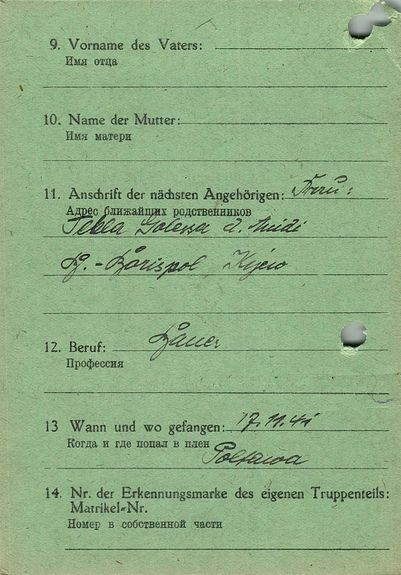 9. Vorname des Vaters:
Имя отца
10. Name der Mutter:
Имя матери
11. Anschrift der nächsten Angehörigen: Frau:
Адрес ближайших родственников
Tekla
B.-Borispol Kiew
12. Beruf: Bauer
Профессия
13 Wann und wo gefangen: 17.11.41
Когда и где попал в плен
Poltawa
14. Nr. der Erkennungsmarke des eigenen Truppenteils:
Matrikel-Nr.
Номер в собственной части